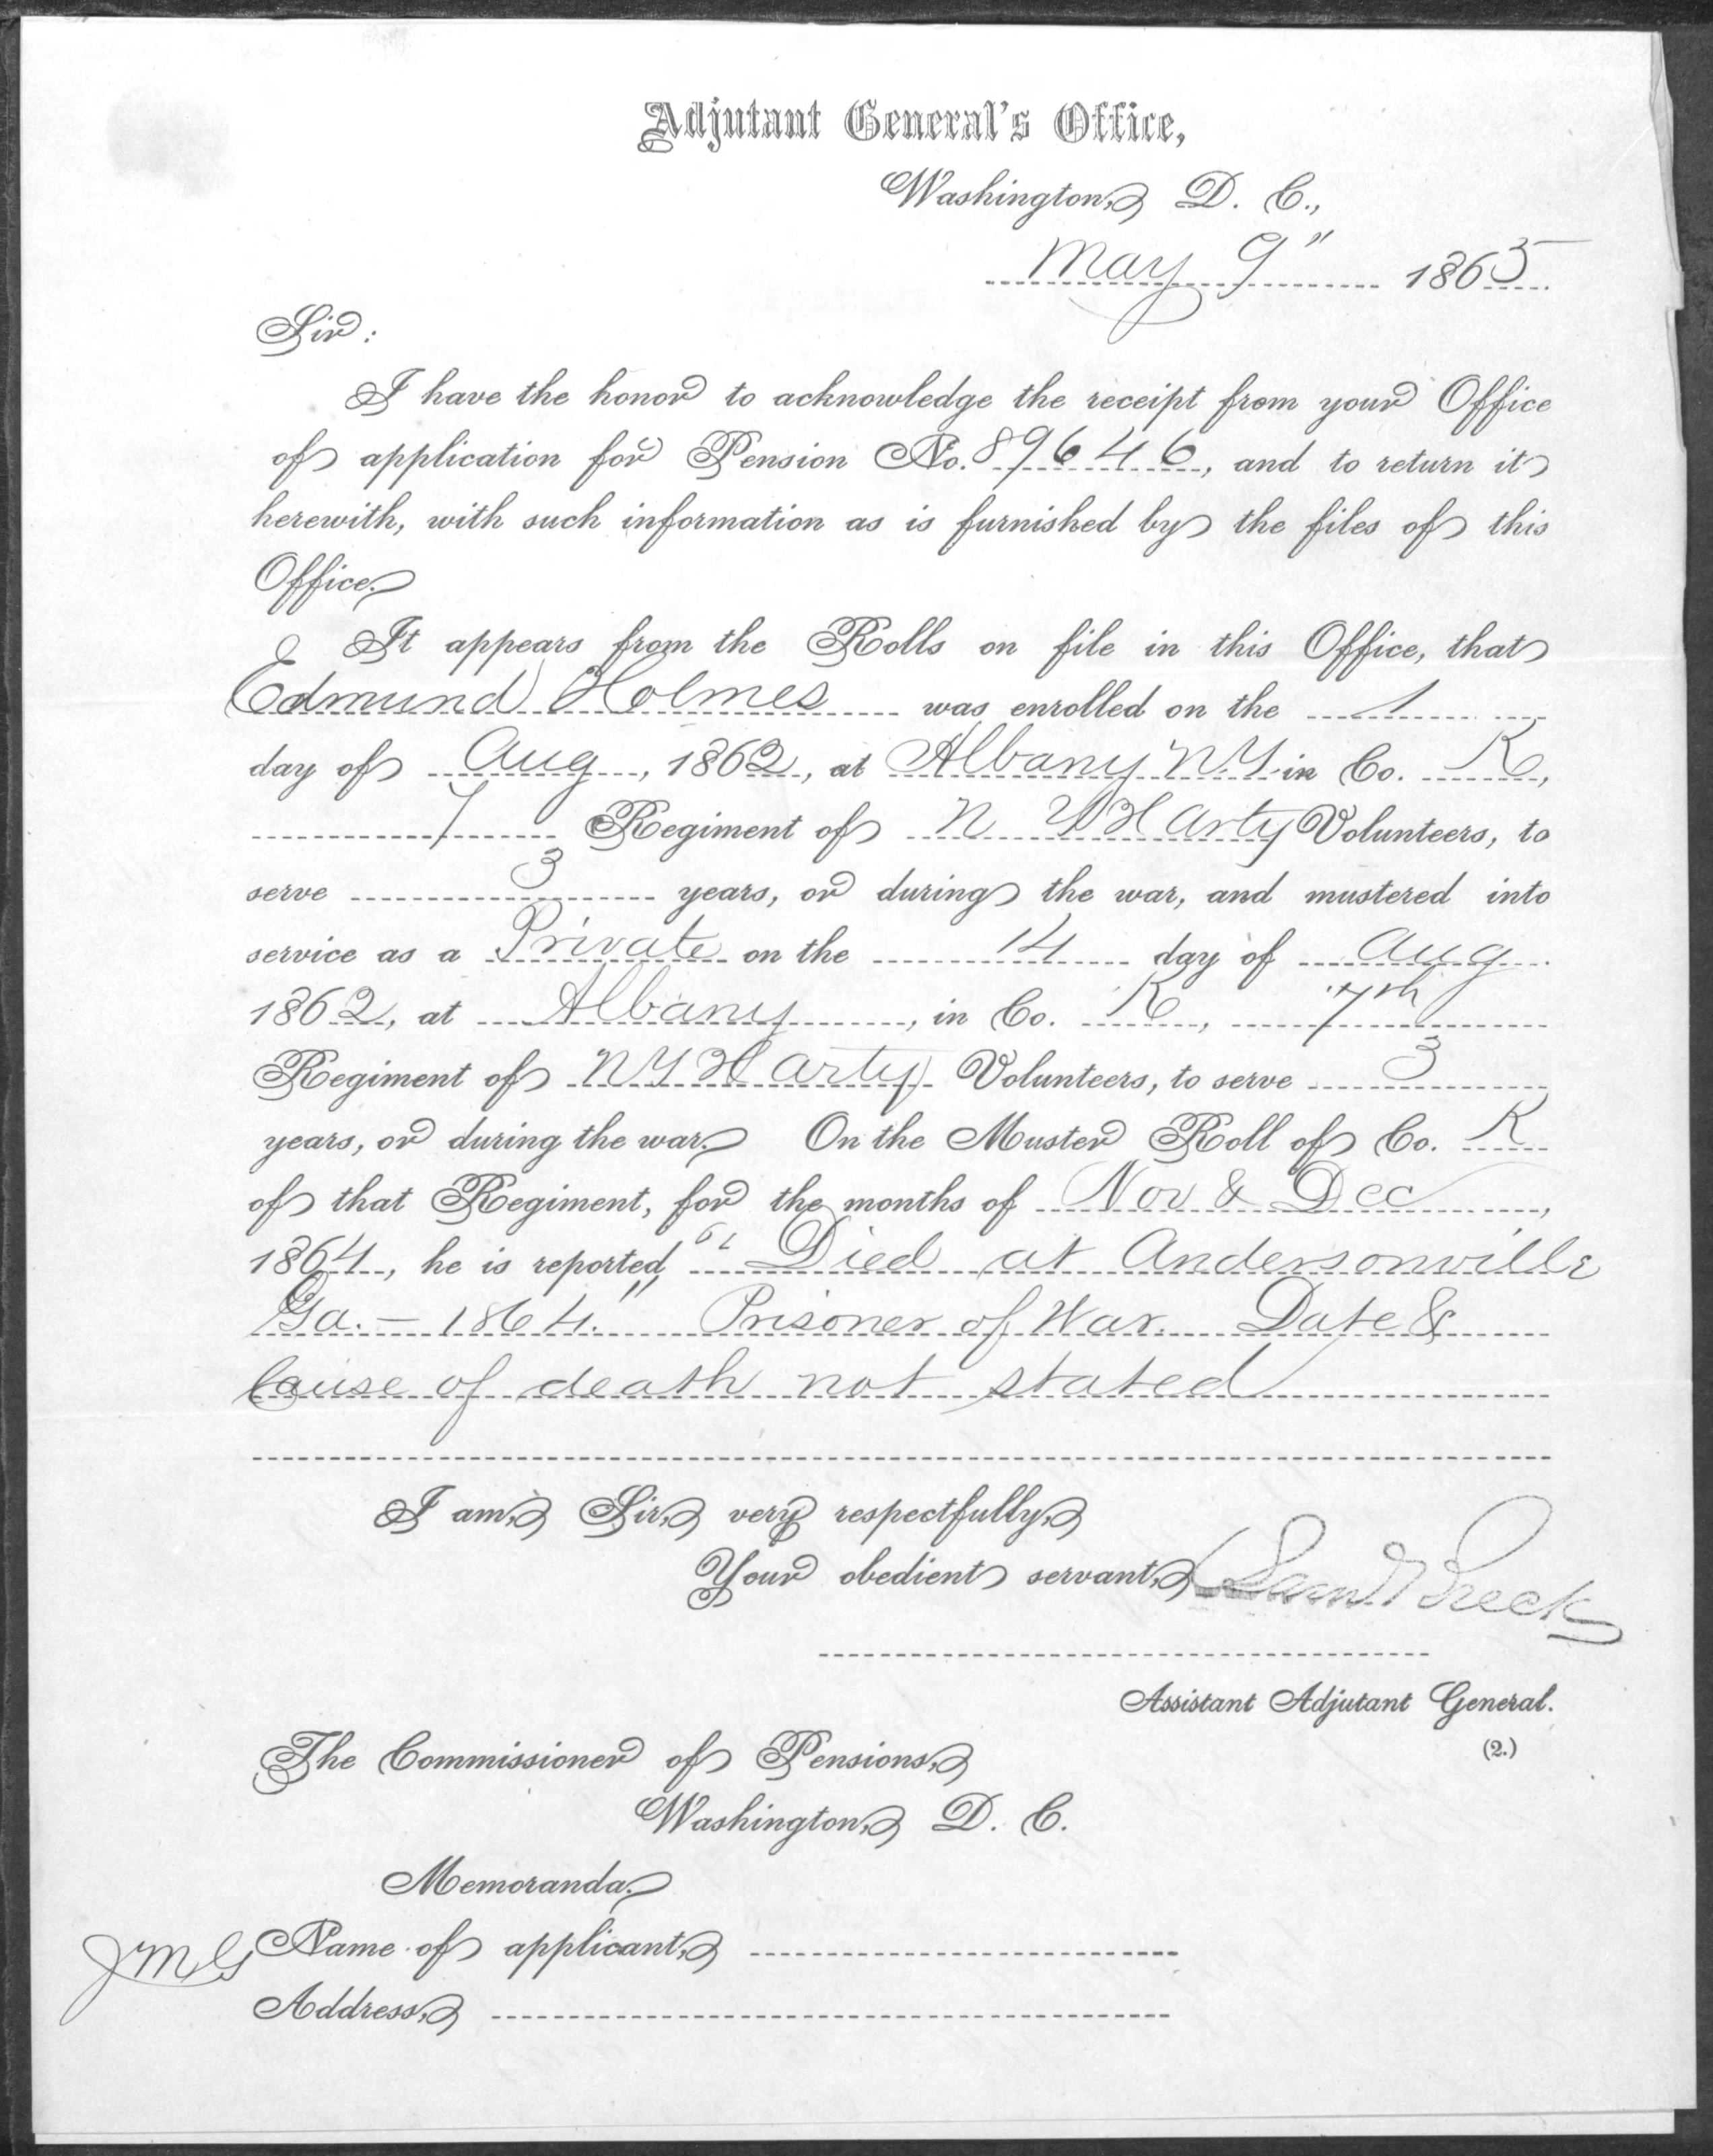 Adjutant General's Office,
Washington, D. C.,
May 9" 1865
Sir:
I have the honor to acknowledge the receipt from your Office
of application for Pension No. 89646, and to return it
herewith, with such information as is furnished by the files of this
Office.
It appears from the Rolls on file in this Office, that
Edmund Holmes was enrolled on the 1
day of Aug, 1862, at Albany N.Y. in Co. K,
7 Regiment of N Y H Arty Volunteers, to
serve 3 years, or during the war, and mustered into
service as a Private on the 14 day of Aug
1862, at Albany, in Co. K, 7th
Regiment of N Y H Arty Volunteers, to serve 3
years, or during the war. On the Muster Roll of Co. K
of that Regiment, for the months of Nov & Dec,
1864, he is reported "Died at Andersonville
Ga. – 1864." Prisoner of War. Date &
Cause of death not stated
I am, Sir, very respectfully,
Your obedient servant, Saml Breck
Assistant Adjutant General.
(2.)
The Commissioner of Pensions,
Washington, D. C.
Memoranda.
JMG Name of applicant,
Address,